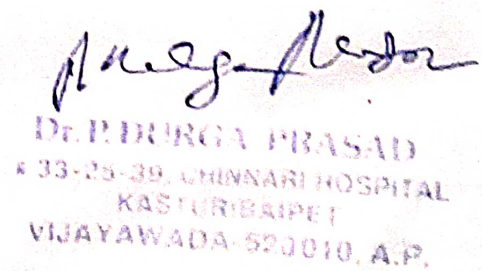 Dr. P. DURGA PRASAD
# 33-25-39, CHINNARI HOSPITAL
KASTURIBAIPET
VIJAYAWADA-520010, A.P.